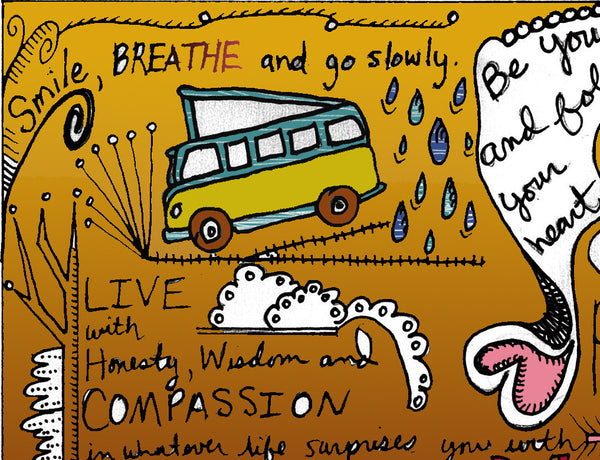 Smile, BREATHE and go slowly.
Be you
and fol
your
heart
LIVE
with
Honesty, Wisdom and
COMPASSION
in whatever life surprises you with